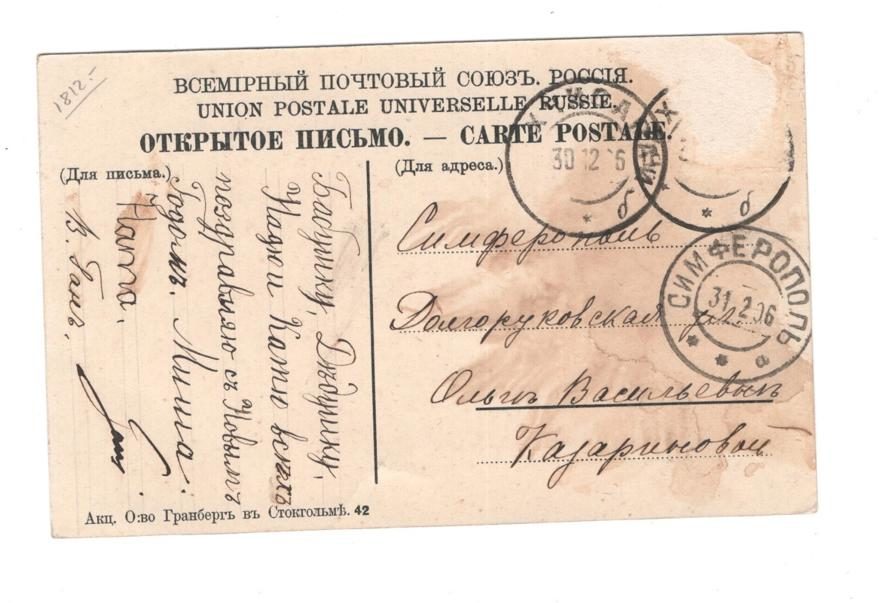 1812.-
ВСЕМІРНЫЙ ПОЧТОВЫЙ СОЮЗЪ. РОССІЯ.
UNION POSTALE UNIVERSELLE RUSSIE.
ОТКРЫТОЕ ПИСЬМО. — CARTE POSTALE.
(Для письма.)
(Для адреса.)
Бабушку, Дѣдушку,
Надю и Катю всѣхъ
поздравляю съ Новымъ
Годомъ. Миша.
Папа.
Симферополь
Долгоруковская ул.
Ольгѣ Васильевнѣ
Казариновой
30 12 06
б
б
СИМФЕРОПОЛЬ
31 12 06
а
Акц. О:во Гранбергъ въ Стокгольмѣ. 42